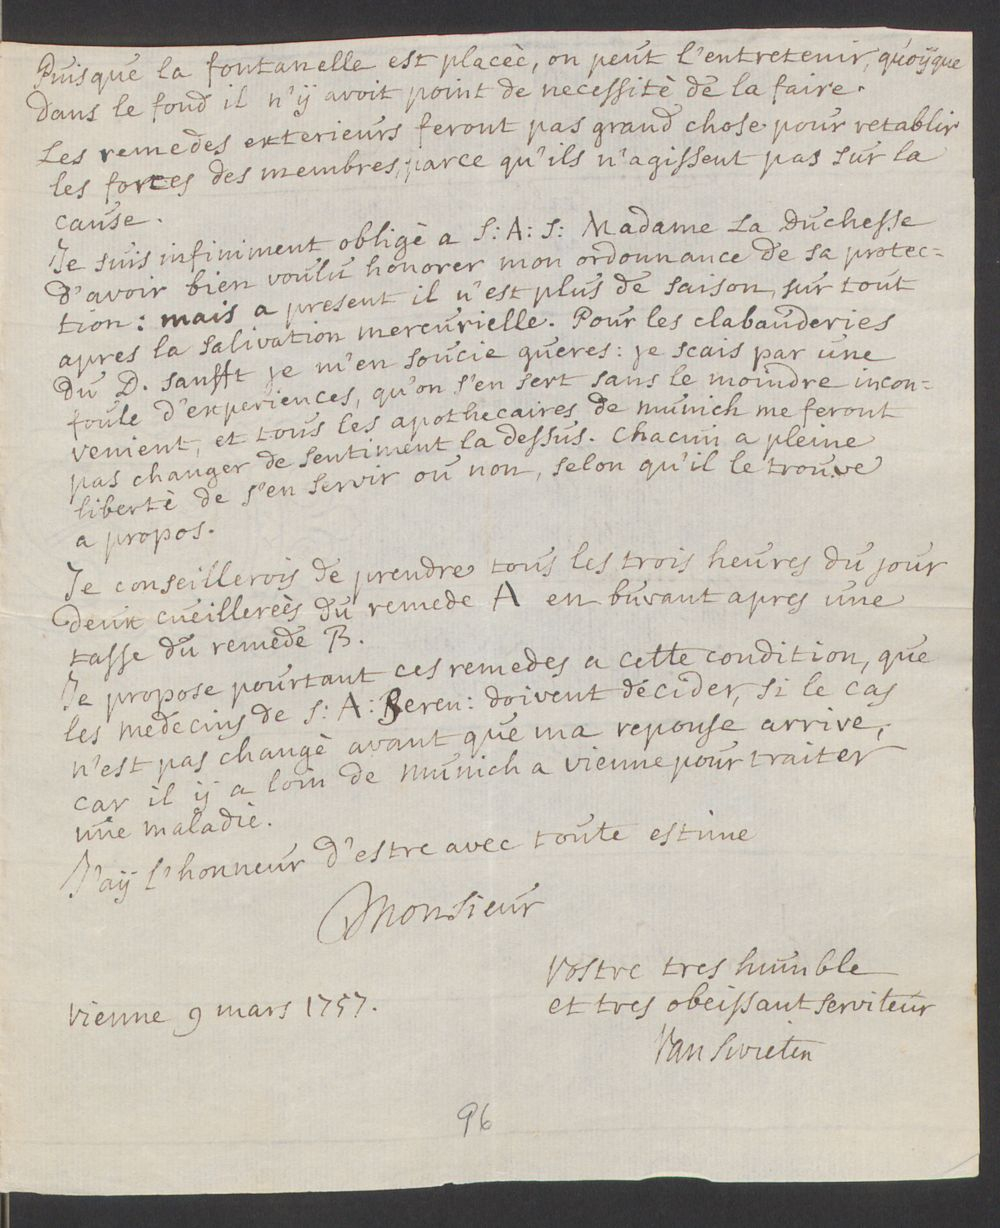 Puisque la fontanelle est placèe, on peut l'entretenir, quoÿque
dans le fond il n'ÿ avoit point de necessitè de la faire.
Les remedes exterieurs feront pas grand chose pour retablir
les forces des membres, parce qu'ils n'agissent pas sur la
cause.
Je suis infiniment obligè a S: A: S: Madame La Duchesse
d'avoir bien voulu honorer mon ordonnance de sa protec=
tion: mais a present il n'est plus de saison, sur tout
apres la salivation mercurielle. Pour les clabauderies
du D. Sanfft je m'en soucie gueres: je scais par une
foule d'experiences, qu'on s'en sert sans le moindre incon=
venient, et tous les apothecaires de munich me feront
pas changer de sentiment la dessus. Chacun a pleine
libertè de s'en servir ou non, selon qu'il le trouve
a propos.
Je conseillerois de prendre tous les trois heures du jour
deux cueillereès du remede A en buvant apres une
tasse du remede B.
Je propose pourtant ces remedes a cette condition, que
les medecins de S: A: Seren: doivent decider, si le cas
n'est pas changè avant que ma reponse arrive,
car il ÿ a loin de munich a vienne pour traiter
une maladie.
J'aÿ l'honneur d'estre avec toute estime
Monsieur
Vostre tres humble
et tres obeissant serviteur
Van Swieten
Vienne 9 mars 1757.
96